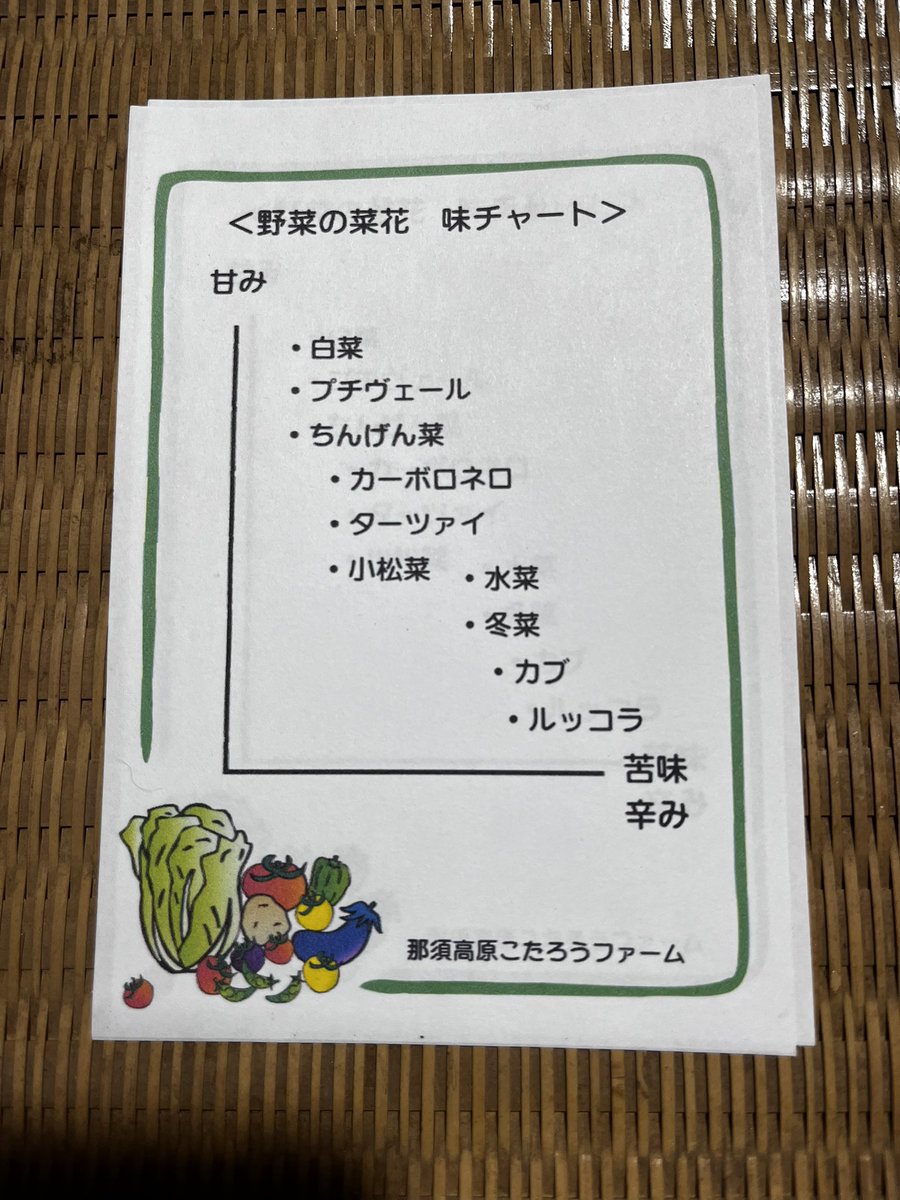 ＜野菜の菜花　味チャート＞
甘み
・白菜
・プチヴェール
・ちんげん菜
・カーボロネロ
・ターツァイ
・小松菜
・水菜
・冬菜
・カブ
・ルッコラ
苦味
辛み
那須高原こたろうファーム